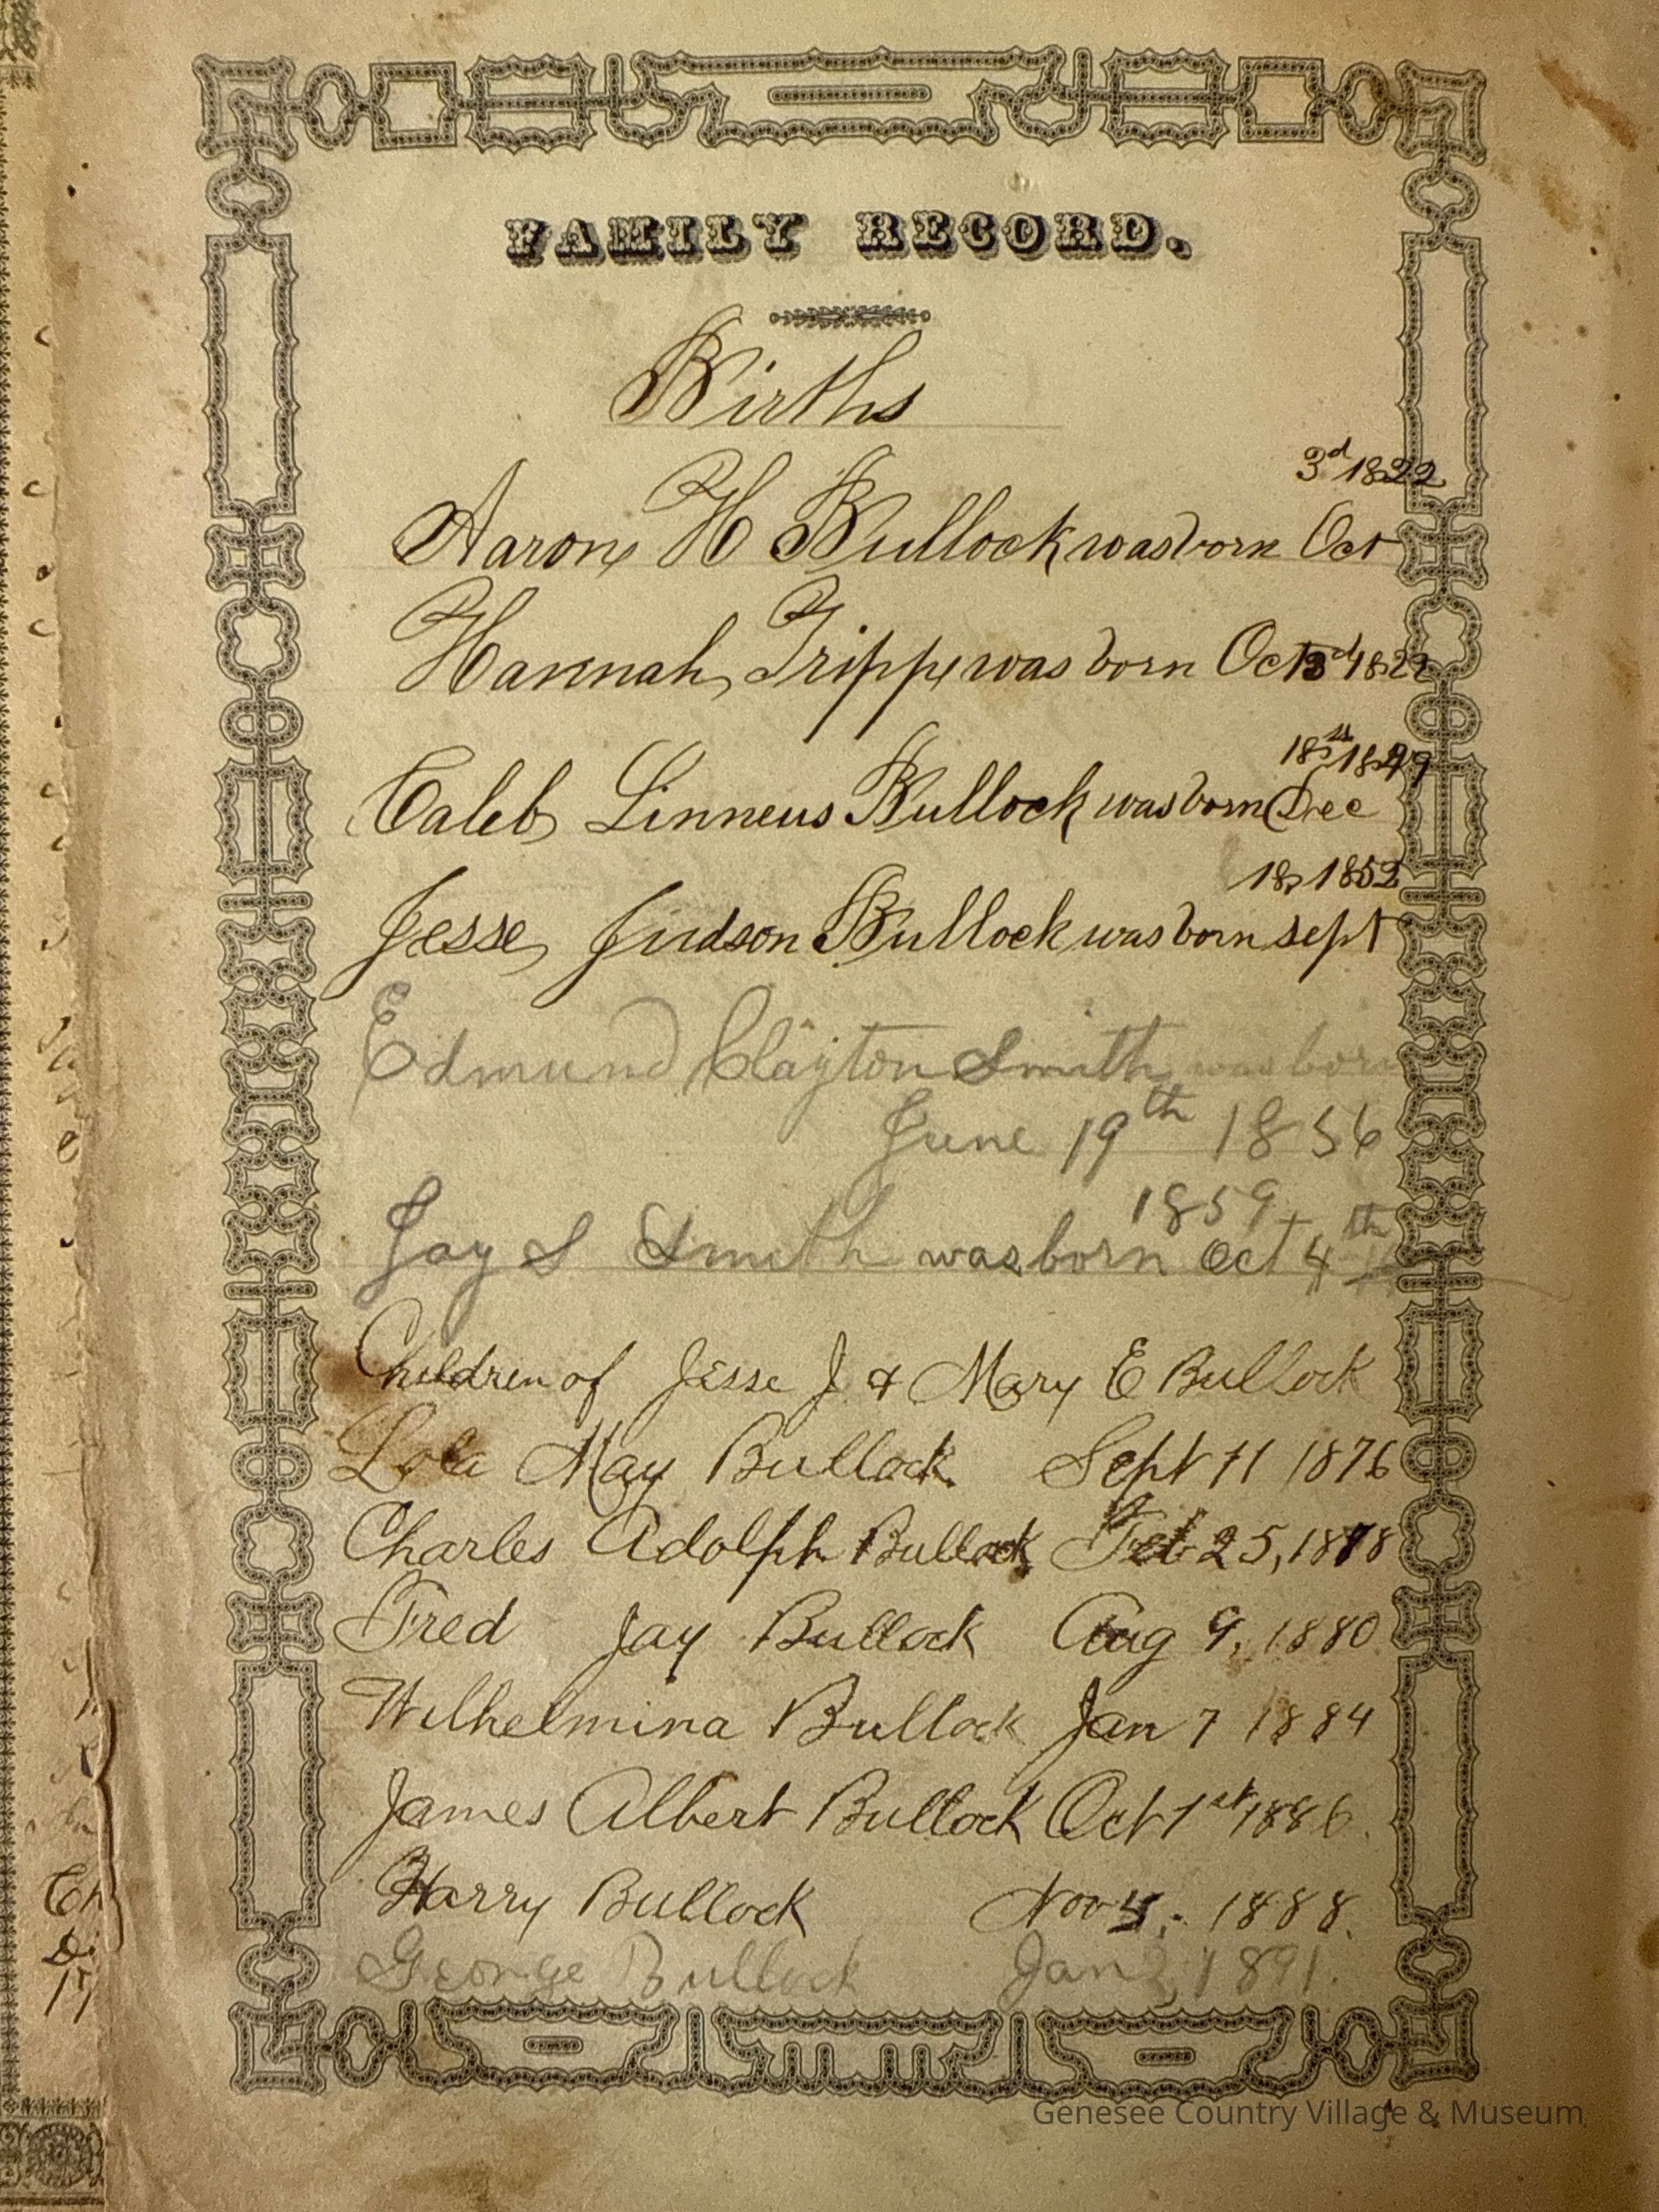 FAMILY RECORD.
Births
3d 1822
Aaron H Bullock was born Oct
Hannah Tripp was born Oct 1822
1849
Caleb Linneus Bullock was born Dec
18 1852
Jesse Judson Bullock was born sept
Edmund Clayton Smith was born
June 19th 1856
1859
Jay S Smith was born Oct 4th
Children of Jesse J. & Mary E Bullock
Lola May Bullock Sept 11 1876
Charles Adolph Bullock Feb 25, 1878
Fred Jay Bullock Aug 9, 1880
Wilhelmina Bullock Jan 7 1884
James Albert Bullock Oct 1st 1886.
Harry Bullock Nov 1888.
George Bullock Jan 1891.
Genesee Country Village & Museum